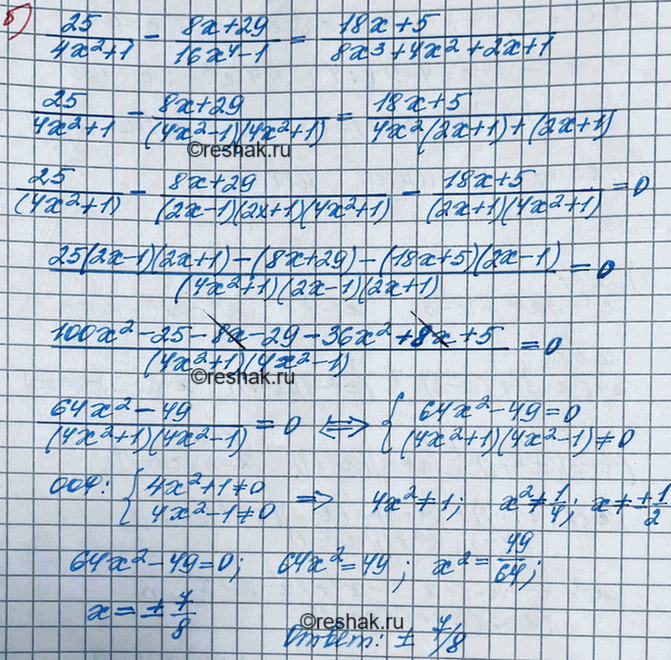 б) 25/(4x²+1) − (8x+29)/(16x⁴−1) = (18x+5)/(8x³+4x²+2x+1)
25/(4x²+1) − (8x+29)/((4x²−1)(4x²+1)) = (18x+5)/(4x²(2x+1)+(2x+1))
©reshak.ru
25/(4x²+1) − (8x+29)/((2x−1)(2x+1)(4x²+1)) − (18x+5)/((2x+1)(4x²+1)) = 0
(25(2x−1)(2x+1)−(8x+29)−(18x+5)(2x−1))/((4x²+1)(2x−1)(2x+1)) = 0
(100x²−25−8x−29−36x²+8x+5)/((4x²+1)(4x²−1)) = 0
©reshak.ru
(64x²−49)/((4x²+1)(4x²−1)) = 0 ⟺ { 64x²−49=0
(4x²+1)(4x²−1)≠0
ООФ: { 4x²+1≠0
4x²−1≠0 ⇒ 4x²≠1; x²≠1/4; x≠±1/2
64x²−49=0; 64x²=49; x²=49/64;
x=±7/8
©reshak.ru
Ответ: ± 7/8